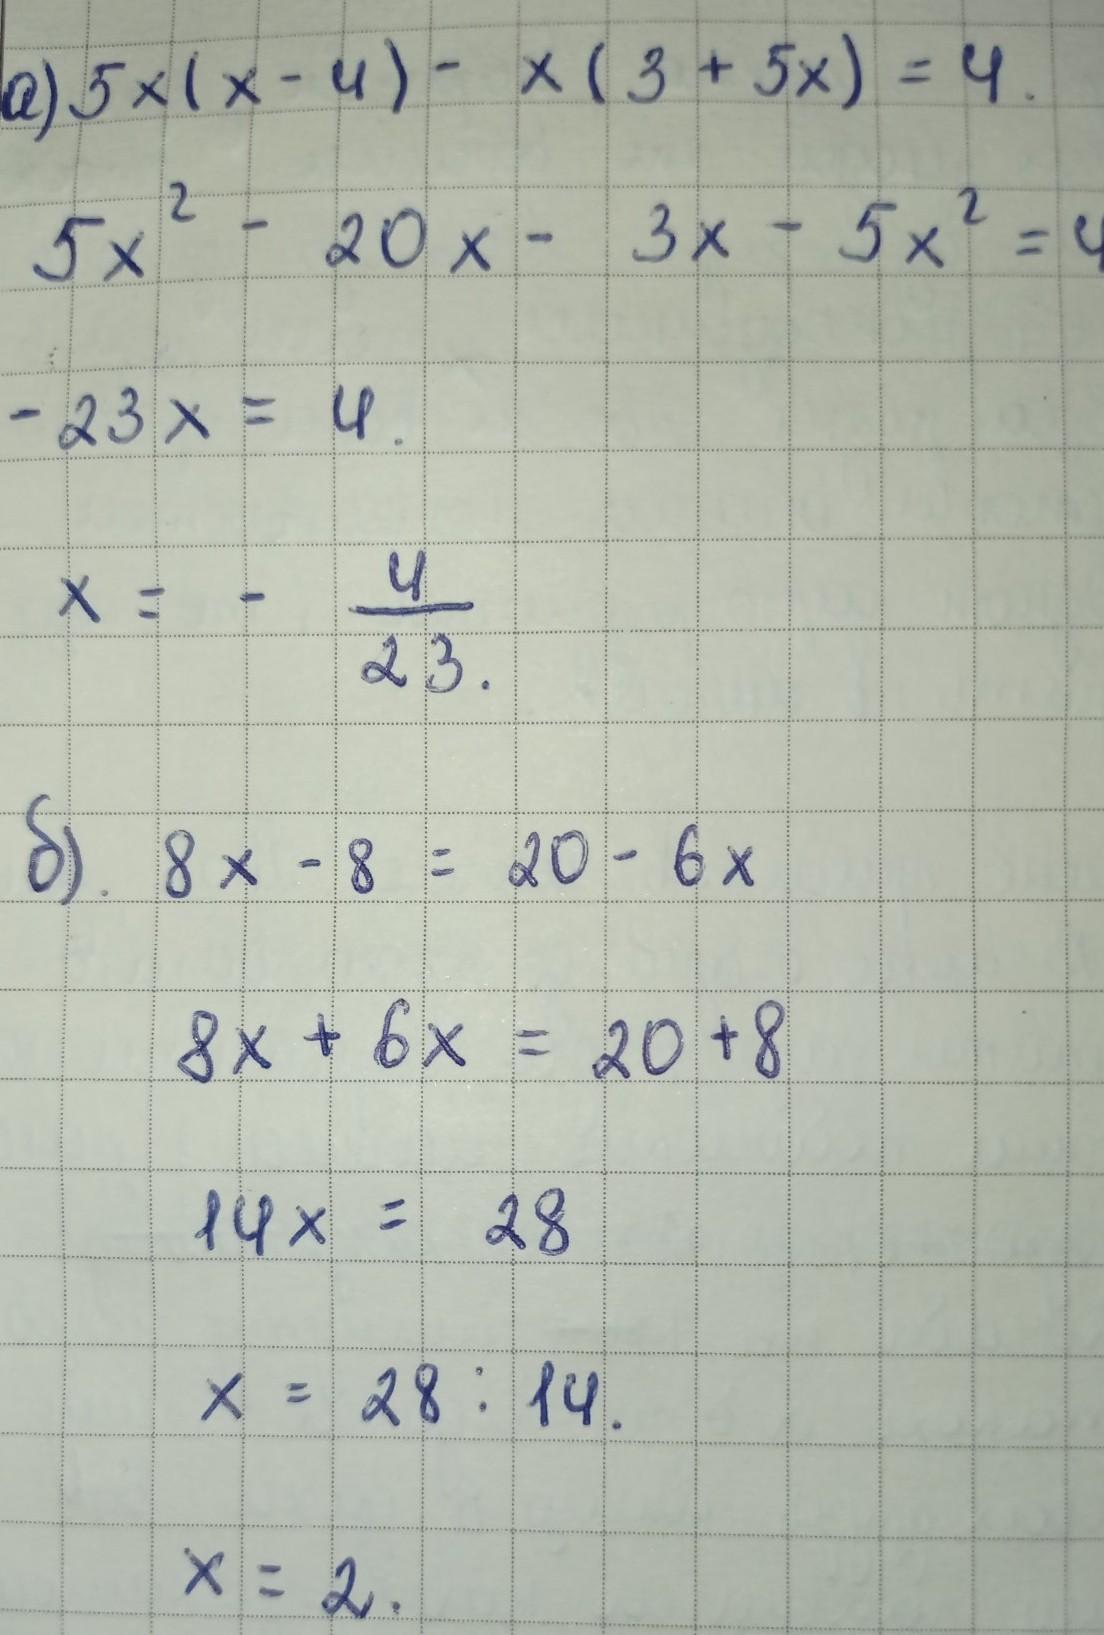 а) 5x(x - 4) - x(3 + 5x) = 4.
5x² - 20x - 3x - 5x² = 4
-23x = 4.
x = - 4/23.
б). 8x - 8 = 20 - 6x
8x + 6x = 20 + 8
14x = 28
x = 28 : 14.
x = 2.